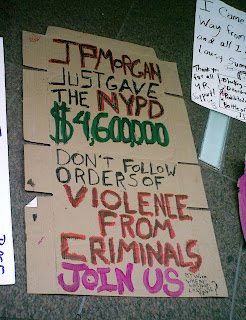 JPMORGAN
JUST GAVE
THE NYPD
$4,600,000
DON'T FOLLOW
ORDERS OF
VIOLENCE
FROM
CRIMINALS
JOIN US
I Came
Way from
and all I
Lousy
Thank
for all